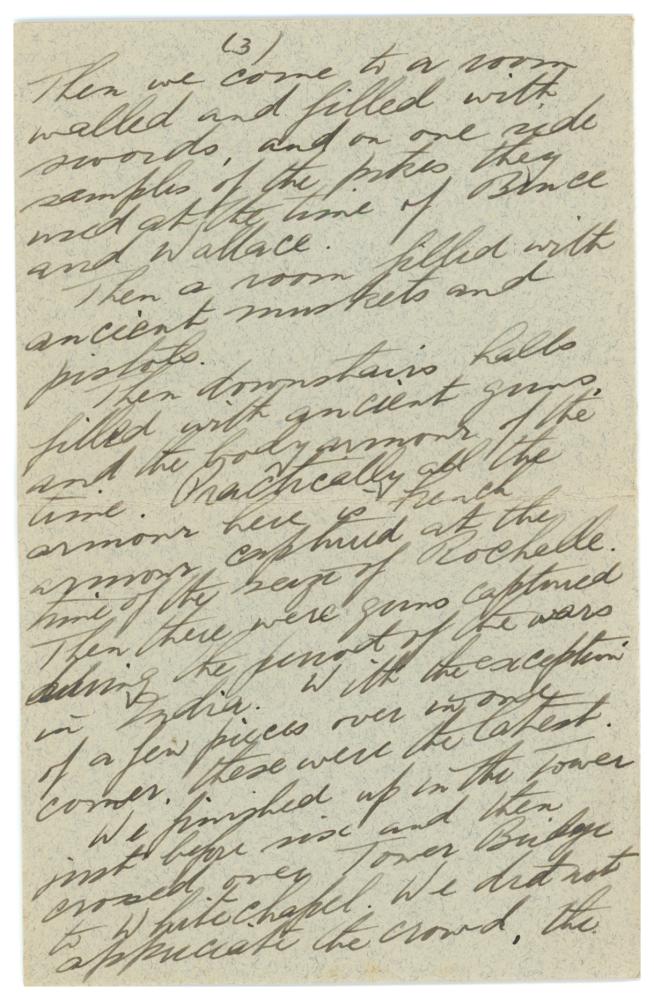 (3)
Then we come to a room
walled and filled with
swords, and on one side
samples of the pikes they
used at the time of Bruce
and Wallace.
Then a room filled with
ancient muskets and
pistols.
Then downstairs halls
filled with ancient guns,
and the body armour of the
time. Practically all the
armour here is French
armour captured at the
time of the seize of Rochelle.
Then there were guns captured
during the period of the wars
in India. With the exception
of a few pieces over in one
corner, these were the latest.
We finished up in the Tower
just before six and then
crossed over Tower Bridge
to Whitechapel. We did not
appreciate the crowd, the